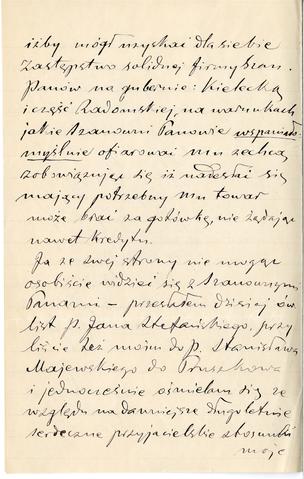 iżby mógł uzyskać dla siebie
zastępstwo solidnej firmy Szan.
Panów na gubernie: Kielecką
i część Radomskiej, na warunkach
jakie Szanowni Panowie wspaniało
myślnie ofiarować mu zechcą
zobowiązując się iż należący się
mający potrzebny mu towar
może brać za gotówkę, nie żądając
nawet kredytu.
Ja ze swej strony nie mogąc
osobiście widzieć się z Szanownymi
Panami – przesłałem dzisiaj ów
list p. Jana Stefańskiego, przy
liście też moim do p. Stanisława
Majewskiego do Pruszkowa
i jednocześnie ośmielam się ze
względu na dawniejsze długoletnie
serdeczne przyjacielskie stosunki
moje